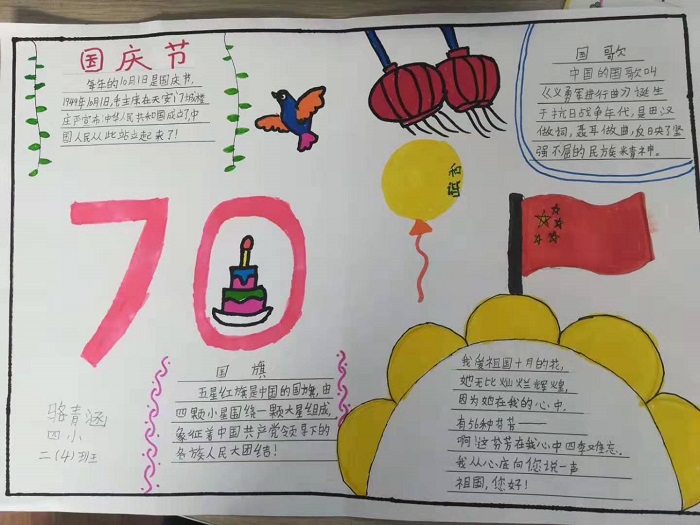 国庆节
每年的10月1日是国庆节,
1949年10月1日,毛主席在天安门城楼
庄严宣布:中华人民共和国成立了,中
国人民从此站立起来了!
国歌
中国的国歌叫
《义勇军进行曲》诞生
于抗日战争年代,是田汉
做词,聂耳做曲,反映了坚
强不屈的民族精神。
祖国
70
国旗
五星红旗是中国的国旗,由
四颗小星围绕一颗大星组成,
象征着中国共产党领导下的
各族人民大团结!
我爱祖国十月的花,
她无比灿烂辉煌,
因为她在我的心中,
有56种芬芳——
啊!这芬芳在我心中四季难忘.
我从心底向您说一声
祖国,您好!
骆青涵
四小
二(4)班